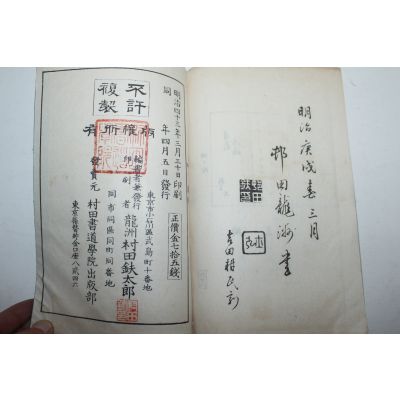 明治庚戌春三月
邨田龍洲書
吉田精民刻
明治四十三年三月三十日印刷
同　年四月五日發行
正價金七拾五錢
不許
複製
版權所有
東京市小石川區武島町十番地
編書者兼發行
印刷者
龍洲村田鈇太郎
同市同區同町同番地
發賣元　村田書道學院出版部
東京振替貯金口座八貳四六